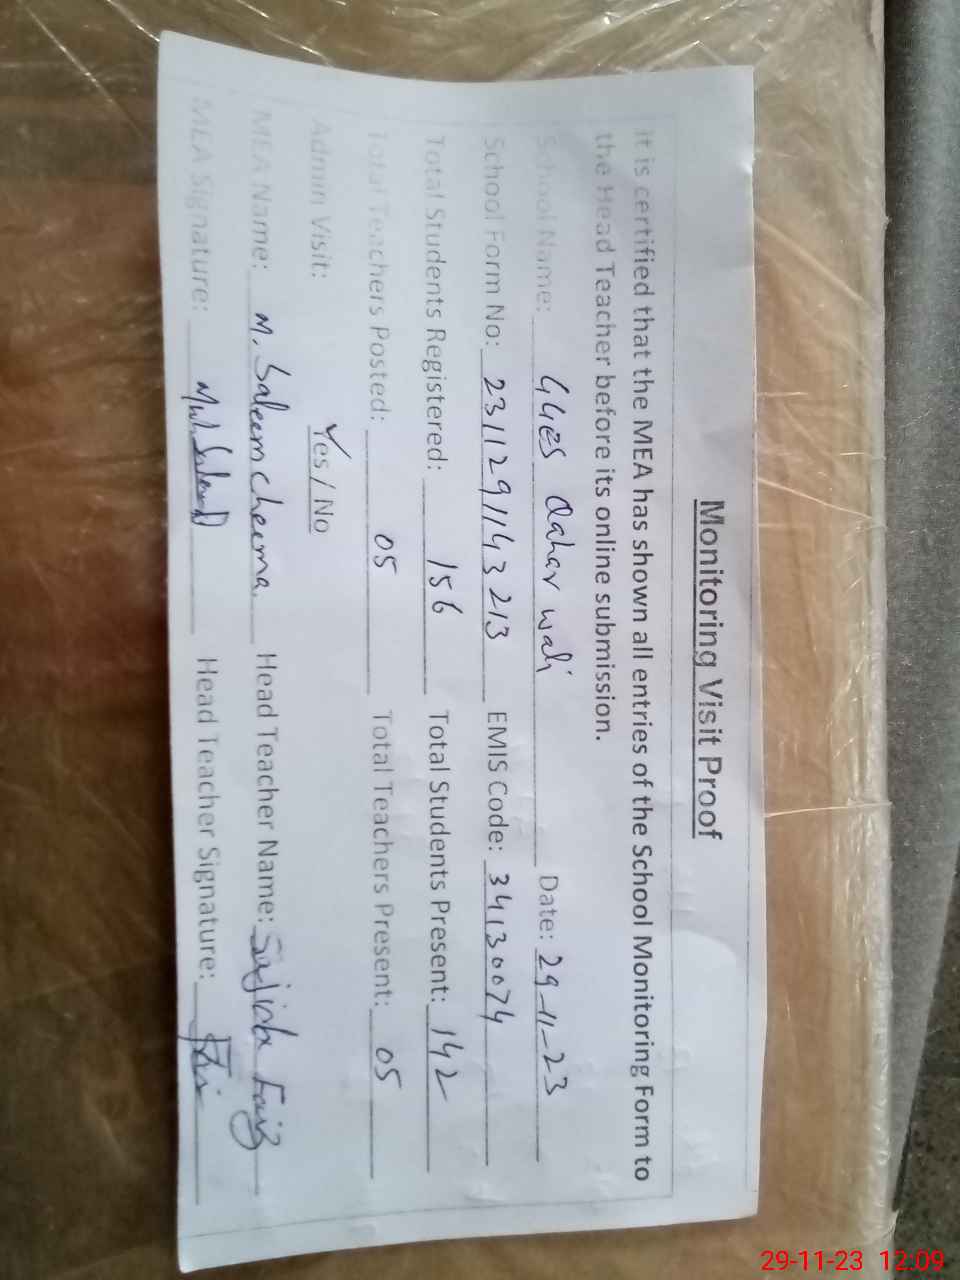 Monitoring Visit Proof
It is certified that the MEA has shown all entries of the School Monitoring Form to
the Head Teacher before its online submission.
School Name: GGES dahar wali Date: 29-11-23
School Form No: 2311291143213 EMIS Code: 34130074
Total Students Registered: 156 Total Students Present: 142
Total Teachers Posted: 05 Total Teachers Present: 05
Admin Visit: Yes / No
MEA Name: M. Saleem cheema. Head Teacher Name: Sajida Faiz
MEA Signature: Head Teacher Signature:
29-11-23 12:09